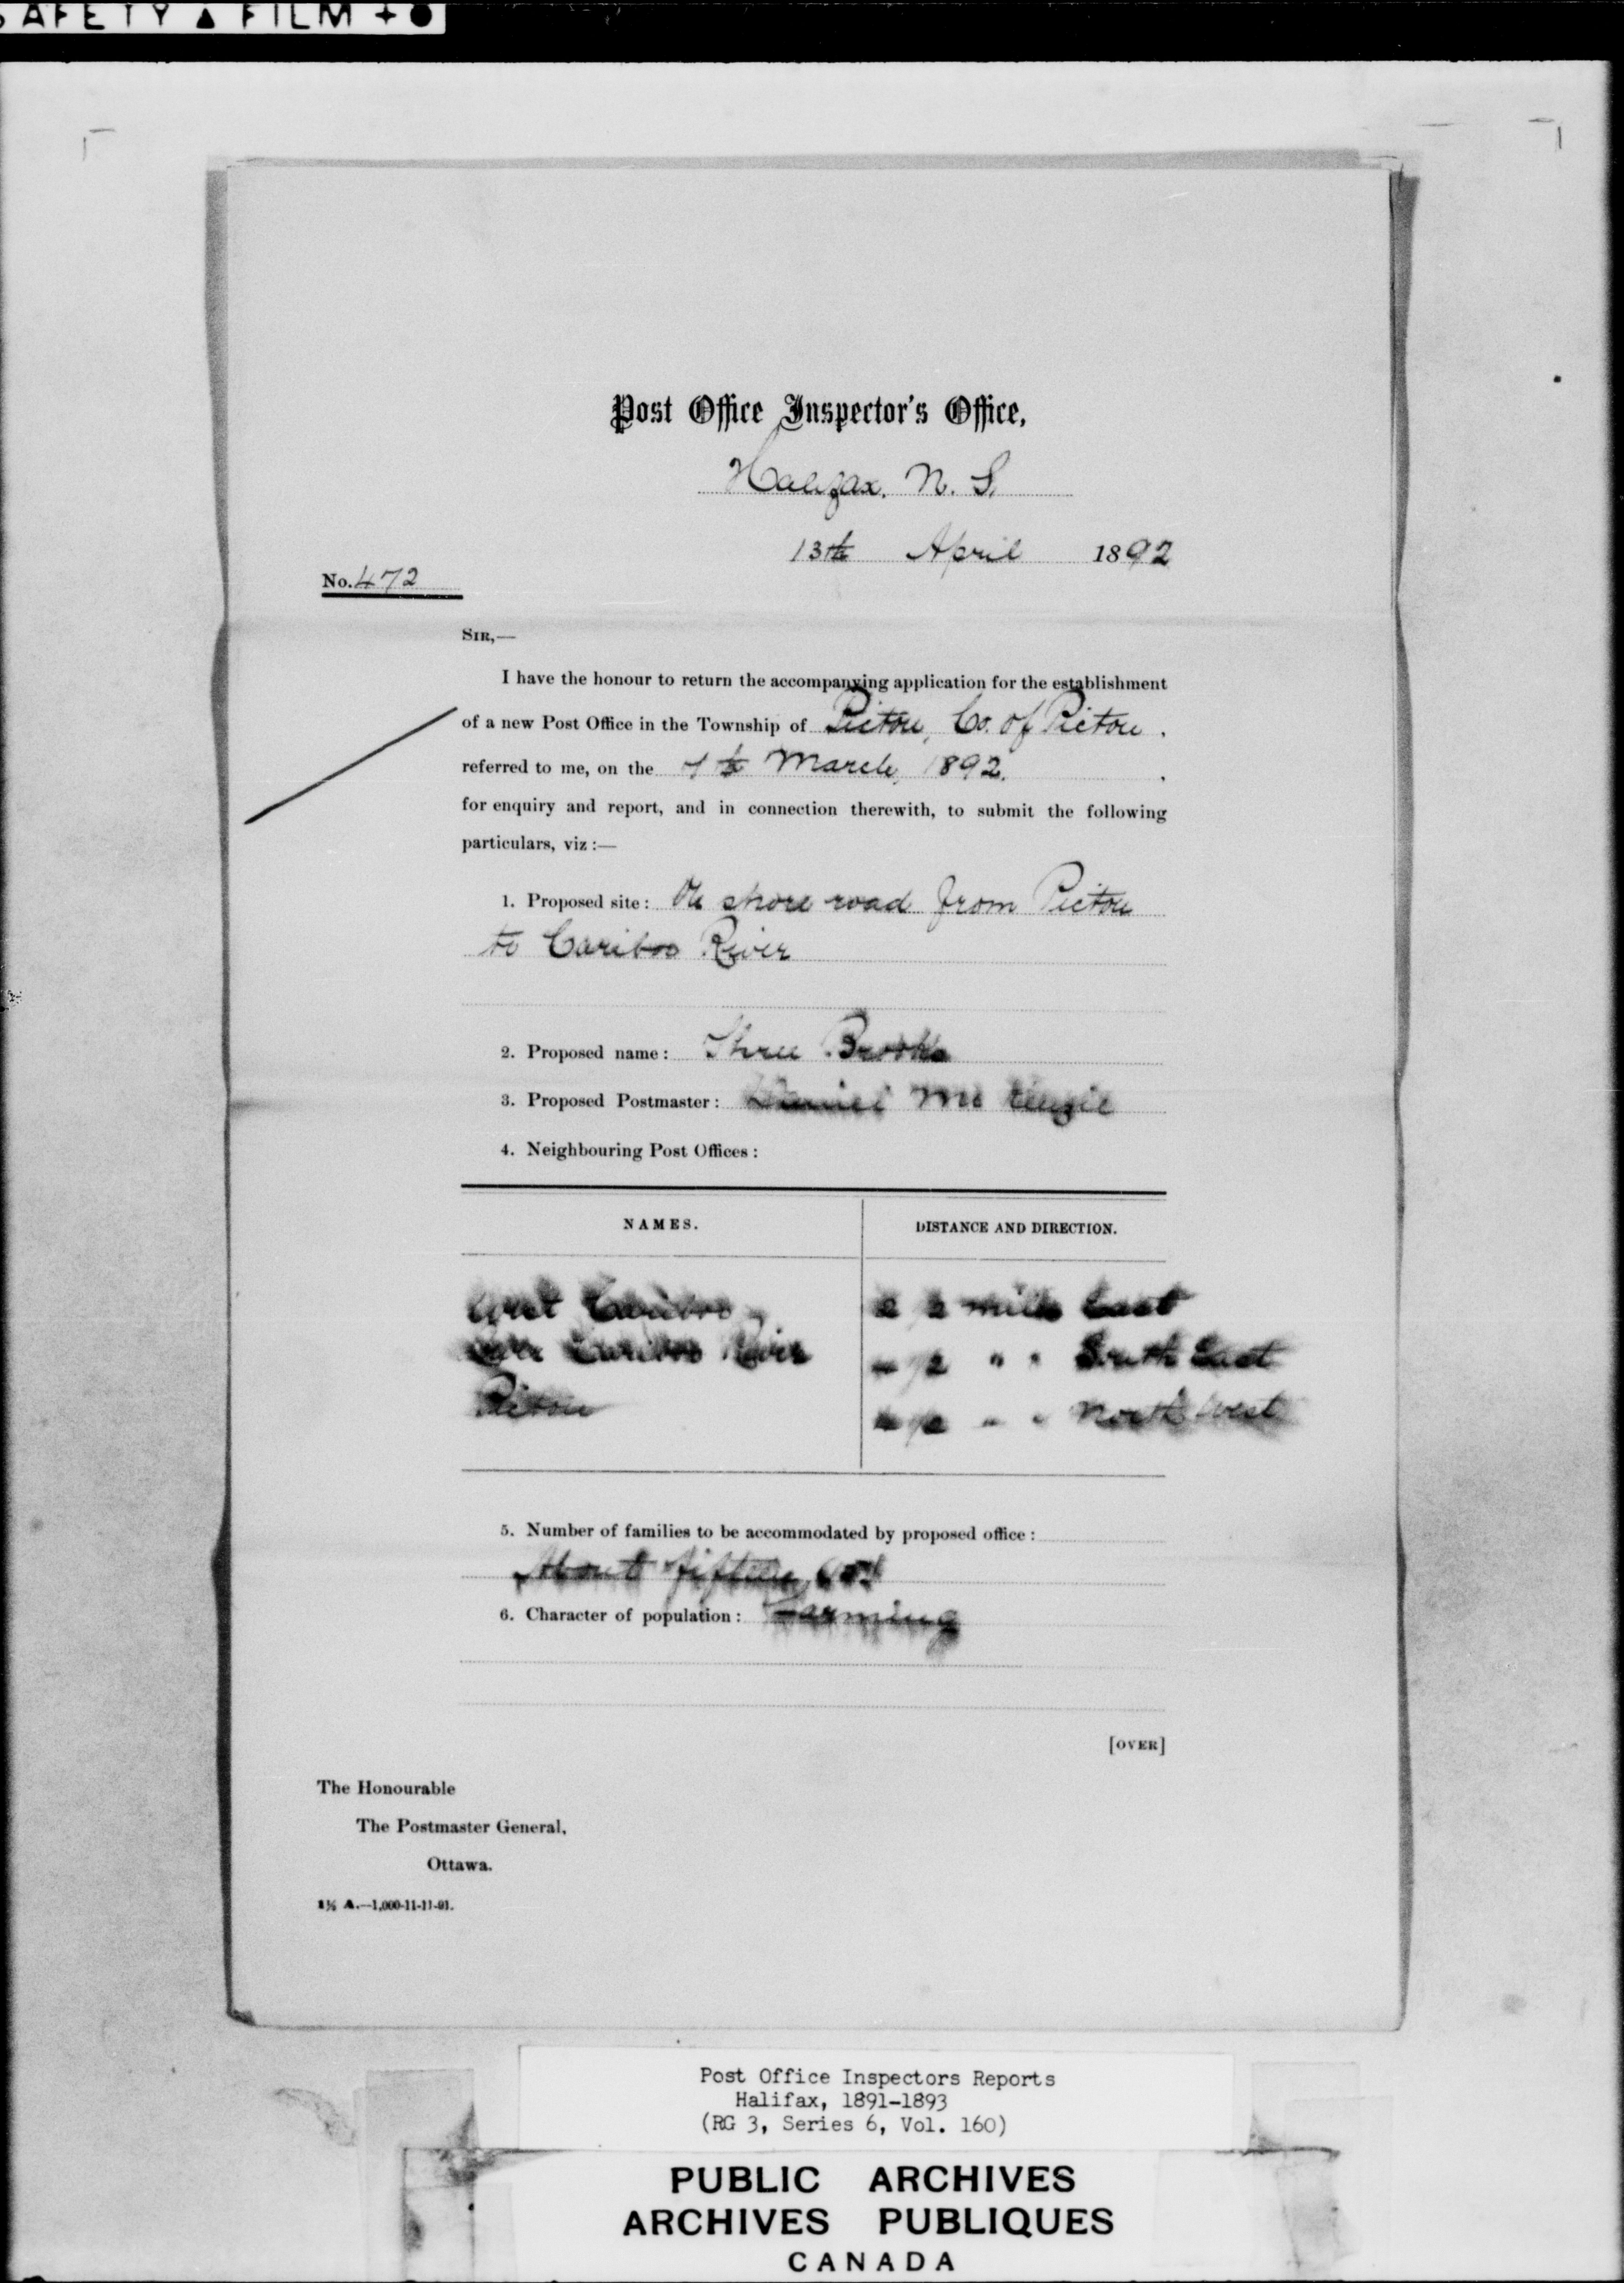 SAFETY ▲ FILM + ●
Post Office Inspector's Office,
Halifax. N. S.
13th April 1892
No. 472
SIR,—
I have the honour to return the accompanying application for the establishment
of a new Post Office in the Township of Pictou, Co. of Pictou.
referred to me, on the March, 1892.
for enquiry and report, and in connection therewith, to submit the following
particulars, viz :—
1. Proposed site: On shore road from Pictou
to Cariboo River
2. Proposed name: Three Brooks
3. Proposed Postmaster: Daniel McKenzie
4. Neighbouring Post Offices:
NAMES. DISTANCE AND DIRECTION.
West Cariboo miles East
Cariboo River " " South East
Pictou " " North West
5. Number of families to be accommodated by proposed office:
About fifteen
6. Character of population: Farming
[OVER]
The Honourable
The Postmaster General,
Ottawa.
A.—1,000-11-11-91.
Post Office Inspectors Reports
Halifax, 1891-1893
(RG 3, Series 6, Vol. 160)
PUBLIC ARCHIVES
ARCHIVES PUBLIQUES
CANADA